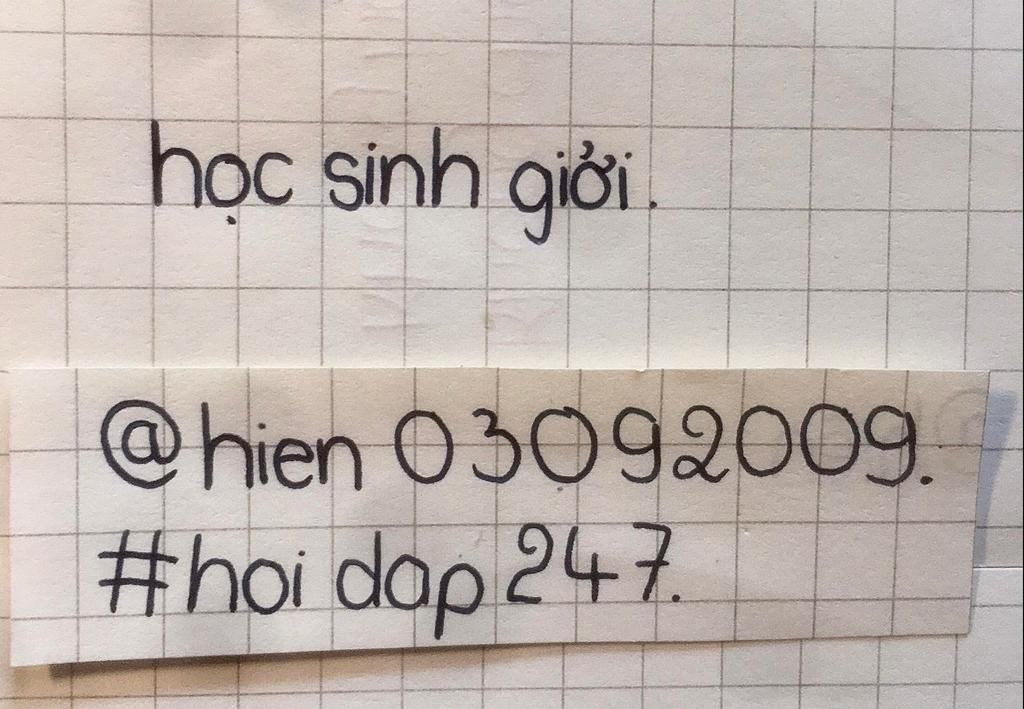 học sinh giởi.
@hien 03092009.
#hoi dap 247.